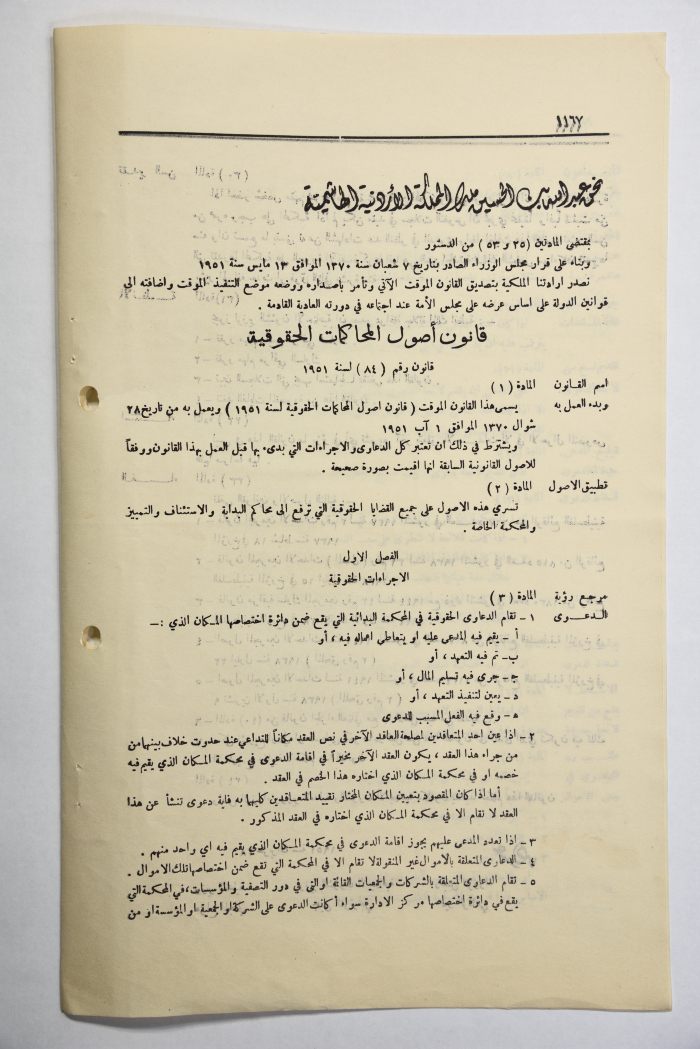 ١١٦٧
نحن عبد الله بن الحسين ملك المملكة الأردنية الهاشمية
بمقتضى المادتين (٢٥ و ٥٣) من الدستور
وبناء على قرار مجلس الوزراء الصادر بتاريخ ٧ شعبان سنة ١٣٧٠ الموافق ١٣ مايس سنة ١٩٥١
نصدر ارادتنا الملكية بتصديق القانون الموقت الآتي ونأمر باصداره ووضعه موضع التنفيذ الموقت واضافته الى
قوانين الدولة على اساس عرضه على مجلس الأمة عند اجتماعه في دورته العادية القادمة .
قانون أصول المحاكمات الحقوقية
قانون رقم (٨٤) لسنة ١٩٥١
اسم القانون المادة (١)
وبدء العمل به يسمى هذا القانون الموقت (قانون اصول المحاكمات الحقوقية لسنة ١٩٥١) ويعمل به من تاريخ ٢٨
شوال ١٣٧٠ الموافق ١ آب ١٩٥١
ويشترط في ذلك ان تعتبر كل الدعاوى والاجراءات التي بدىء بها قبل العمل بهذا القانون ووفقاً
للاصول القانونية السابقة انها اقيمت بصورة صحيحة .
تطبيق الاصول المادة (٢)
تسري هذه الاصول على جميع القضايا الحقوقية التي ترفع الى محاكم البداية والاستئناف والتمييز
والمحكمة الخاصة .
الفصل الاول
الاجراءات الحقوقية
مرجع رؤية المادة (٣)
الدعوى ١ - تقام الدعاوى الحقوقية في المحكمة البدائية التي يقع ضمن دائرة اختصاصها المكان الذي :—
أ - يقيم فيه المدعى عليه او يتعاطى اعماله فيه ، أو
ب - تم فيه التعهد ، أو
ج - جرى فيه تسليم المال ، أو
د - يعين لتنفيذ التعهد ، أو
ه - وقع فيه الفعل المسبب للدعوى
٢ - اذا عين احد المتعاقدين لمصلحة العاقد الآخر في نص العقد مكاناً للتداعي عند حدوث خلاف بينهما من
من جراء هذا العقد ، يكون العقد الآخر مخيراً في اقامة الدعوى في محكمة المكان الذي يقيم فيه
خصمه او في محكمة المكان الذي اختاره هذا الخصم في العقد .
أما اذا كان المقصود بتعيين المكان المختار تقييد المتعاقدين كليهما به فاية دعوى تنشأ عن هذا
العقد لا تقام الا في محكمة المكان الذي اختاره في العقد المذكور .
٣ - اذا تعدد المدعى عليهم يجوز اقامة الدعوى في محكمة المكان الذي يقيم فيه اي واحد منهم .
٤ - الدعاوى المتعلقة بالاموال غير المنقولة لا تقام الا في المحكمة التي تقع ضمن اختصاصها تلك الاموال .
٥ - تقام الدعاوى المتعلقة بالشركات والجمعيات القائمة او التي في دور التصفية والمؤسسات ، في المحكمة التي
يقع في دائرة اختصاصها مركز الادارة سواء أكانت الدعوى على الشركة او الجمعية او المؤسسة او من